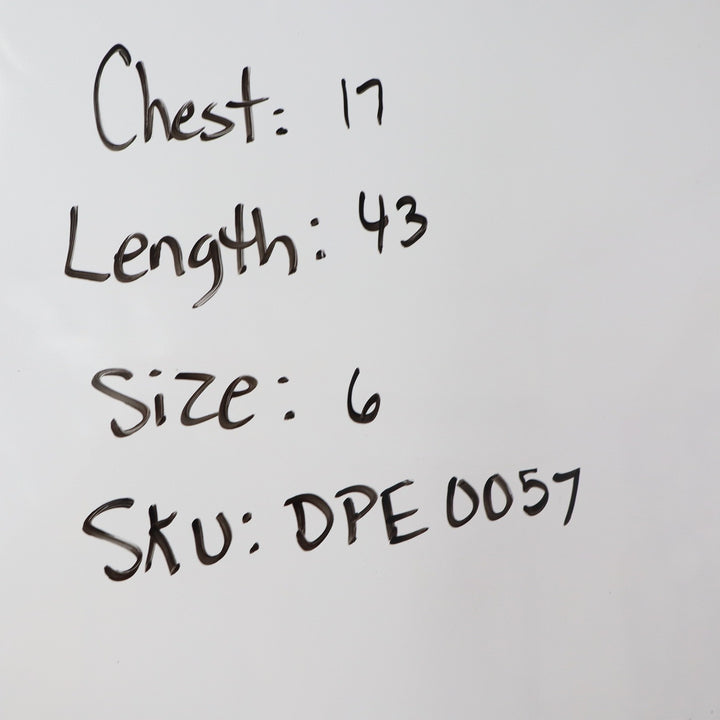 Chest: 17
Length: 43
Size: 6
SKU: DPE 0057